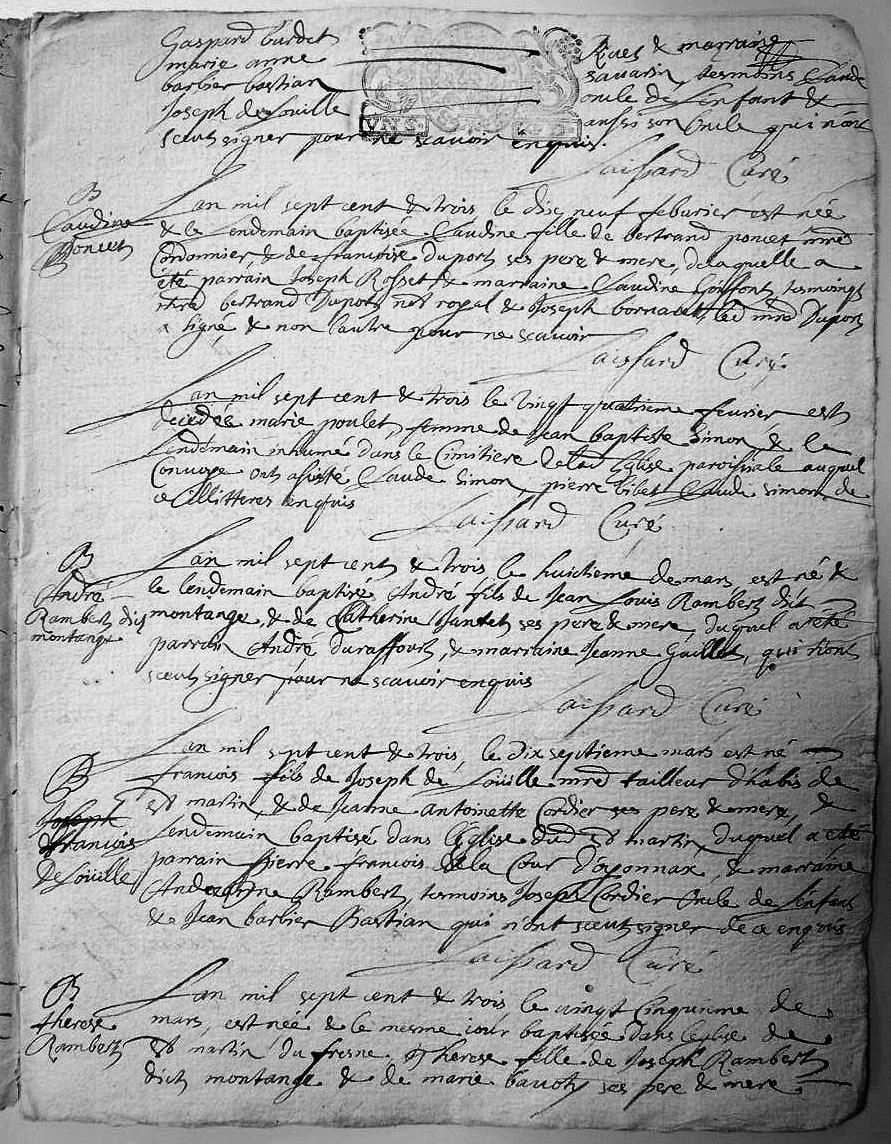 Gaspard burdet Rives & marraine
marie anne savarin, tesmoins Claude
barbier bastian oncle de Lenfant &
Joseph de Souille aussi son oncle qui n'ont
sceut signer pour ne scavoir enquis.
Laissard Curé
B
Claudine
Poncet
Lan mil sept cent & trois le dix neuf febvrier est née
& le Lendemain baptisée Claudine fille de bertrand poncet mre
Cordonnier & de francoise duport ses pere & mere, de laquelle a
été parrain Joseph Rosset & marraine Claudine Goiffont, tesmoings
mre bertrand Duport not royal & Joseph bornadet led mre Duport
a signé & non lautre pour ne scavoir
Laissard Curé
Lan mil sept cent & trois le vingt quatrieme fevrier est
decedée marie poulet femme de Jean baptiste Simon & le
Lendemain inhumé dans le Cimitiere de lad Eglise paroissiale auquel
Convoye ont assisté Claude Simon pierre bibet Claude Simon de
ce illitteres enquis
Laissard Curé
B
André
Rambert dit
montange
Lan mil sept cent & trois le huictieme de mars est né &
le lendemain baptizé André fils de Jean Louis Rambert dit
montange, & de Catherine Jantet ses pere & mere, duquel a été
parrain André duraffourt, & marraine Jeanne Gaillet, qui n'ont
sceut signer pour ne scavoir enquis
Laissard Curé
B
Joseph
francois
de Souille
Lan mil sept cent & trois, le dix septieme mars est né
francois fils de Joseph de Souille mre tailleur d'habis de
st martin, & de Jeanne antoinette Cordier ses pere & mere, &
Lendemain baptisé dans l'Eglise dud st martin, duquel a eté
parrain pierre francois de la Cour d'oyonnax, & marraine
Andreanne Rambert, tesmoins Joseph Cordier Oncle de Lenfant
& Jean barbier Bastian qui n'ont sceut signer de ce enquis
Laissard Curé
B
therese
Rambert
Lan mil sept cent & trois le vingt Cinquieme de
mars, est née & le mesme iour baptisée dans leglise de
st martin du fresne, Therese fille de Joseph Rambert
dict montange & de marie bavot ses pere & mere